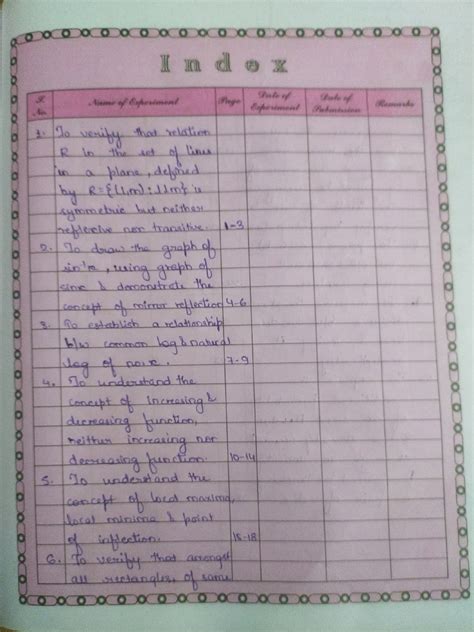 Index
S. No.
Name of Experiment
Page
Date of Experiment
Date of Submission
Remarks
1. To verify that relation
R in the set of lines
in a plane, defined
by R={(l,m): l⊥m} is
symmetric but neither
reflexive nor transitive. 1-3
2. To draw the graph of
sin⁻¹x, using graph of
sinx & demonstrate the
concept of mirror reflection 4-6
3. To establish a relationship
b/w common log & natural
log of no. x. 7-9
4. To understand the
concept of Increasing &
decreasing function,
neither increasing nor
decreasing function. 10-14
5. To understand the
concept of local maxima,
local minima & point
of inflection. 15-18
6. To verify that amongst
all rectangles of same